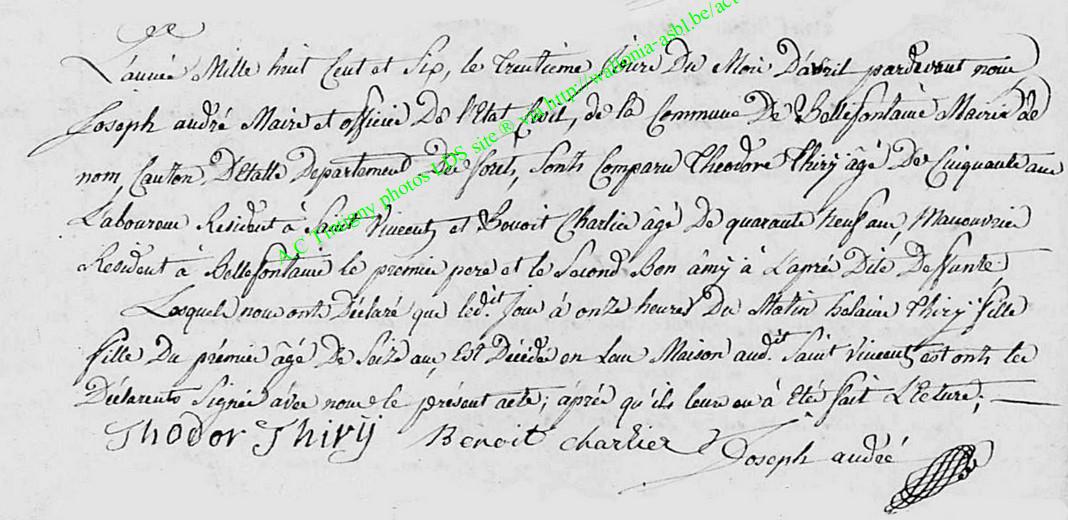 L'année Mille huit Cent et Six, le trentième Jour Du Mois D'avril pardevant nous
Joseph andré Maire et officier De l'Etat Civil, de la Commune De Bellefontaine Mairie de
nom, Canton D'Etalle Departement Des forets, sonts Comparu Theodore Thiry âgé De Cinquante ans
Laboureur Resident à Saint Vincent, et Benoit Charlier âgé De quarante Neuf ans Manouvrier
Resident à Bellefontaine le premier pere et le Second Bon âmÿ à L'aprés Dite Deffunte
Lesquels nous onts Déclaré que led.it Jour à onze heures Du Matin helaine Thirÿ fille
fille Du prémier âgé De Seize ans, Est Décédée en Leur Maison aud.it Saint Vincent, est onts les
Déclarents Signés àvec nous le présent acte; áprés qu'ils leur en à Eté fait L'Ecture;
Thodor Thirÿ Benoit charlier Joseph andré
A.C Tintigny photos LDS site ® via http://wallonia-asbl.be/act